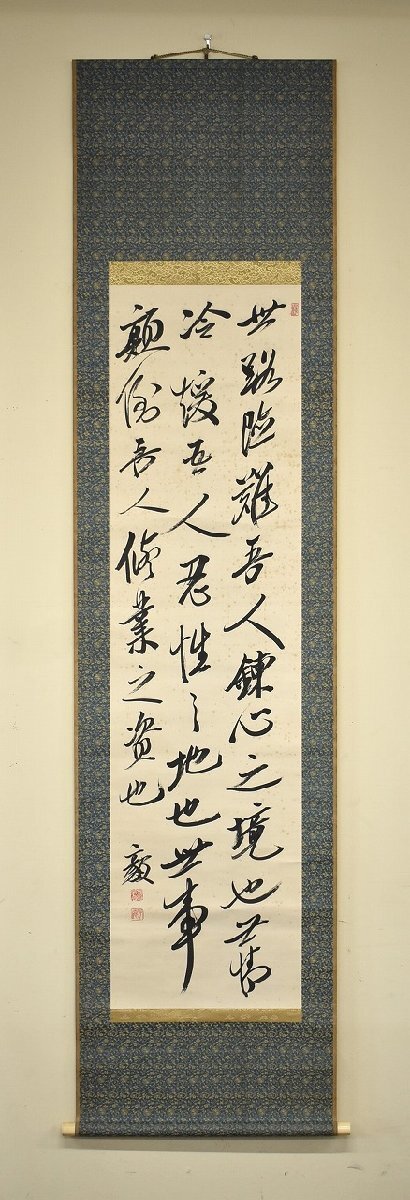 世路險難吾人錬心之境也世情
冷煖吾人忍性之地也世事
顛倒吾人修業之資也 毅